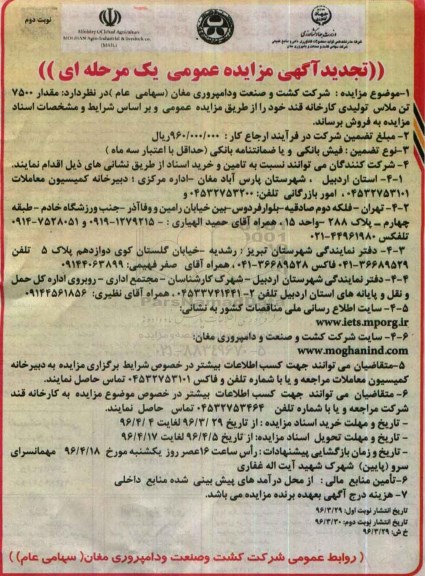 نوبت دوم
Ministry of Jihad-e-Agriculture
MOGHAN Agro-Industrial & livestock co.
((تجدیدآگهی مزایده عمومی یک مرحله ای))
۱-موضوع مزایده : شرکت کشت و صنعت ودامپروری مغان (سهامی عام) در نظردارد: مقدار ۷۵۰۰
تن ملاس تولیدی کارخانه قند خود را از طریق مزایده عمومی و بر اساس شرایط و مشخصات اسناد
مزایده به فروش برساند.
۲- مبلغ تضمین شرکت در فرآیند ارجاع کار : ۹۶۰/۰۰۰/۰۰۰ریال
۳-نوع تضمین : فیش بانکی و یا ضمانتنامه بانکی (حداقل با اعتبار سه ماه )
۴- شرکت کنندگان می توانند نسبت به تامین و خرید اسناد از طریق نشانی های ذیل اقدام نمایند.
۴-۱- استان اردبیل ، شهرستان پارس آباد مغان -اداره مرکزی ؛ دبیرخانه کمیسیون معاملات
۰۴۵۳۲۷۵۳۱۰۱ امور بازرگانی تلفن: ۰۴۵۳۲۷۵۳۲۰۰ و
۴-۲- تهران -فلکه دوم صادقیه -بلوارفردوس-بین خیابان رامین و وفاآذر -جنب ورزشگاه خادم -طبقه
چهارم – پلاک ۲۸۸ -واحد ۱۵ ، همراه آقای حمید الهیاری : ۰۹۱۹-۱۲۷۹۲۱۵ و ۰۹۱۴-۷۵۲۸۰۵۱
تلفکس ۰۲۱-۴۴۹۶۱۹۸۰
۴-۳- دفتر نمایندگی شهرستان تبریز : رشدیه -خیابان گلستان کوی دوازدهم پلاک ۵ تلفن
۰۴۱-۳۶۶۸۹۵۲۹ فاکس ۰۴۱-۳۶۶۸۹۵۲۸، همراه آقای صفر فهیمی: ۰۹۱۴۴۰۶۳۸۹۹
۴-۴- دفتر نمایندگی شهرستان اردبیل – شهرک کارشناسان – مجتمع اداری – روبروی اداره کل حمل
و نقل و پایانه های استان اردبیل تلفن ۲-۰۴۵۳۳۷۴۱۴۴۱، همراه آقای نظیری: ۰۹۱۴۴۵۶۱۸۵۶
۴-۵- سایت اطلاع رسانی ملی مناقصات کشور به نشانی:
www.iets.mporg.ir
۴-۶- سایت شرکت کشت و صنعت و دامپروری مغان:
www.moghanind.com
۵-متقاضیان می توانند جهت کسب اطلاعات بیشتر در خصوص شرایط برگزاری مزایده به دبیرخانه
کمیسیون معاملات مراجعه و یا با شماره تلفن و فاکس ۰۴۵۳۲۷۵۳۱۰۱ تماس حاصل نمایند.
۶-متقاضیان می توانند جهت کسب اطلاعات بیشتر در خصوص موضوع مزایده به کارخانه قند
شرکت مراجعه و یا با شماره تلفن ۰۴۵۳۲۷۵۳۴۶۴ تماس حاصل نمایند.
- تاریخ و مهلت خرید اسناد مزایده : از تاریخ ۹۶/۳/۲۹ لغایت ۹۶/۴/۴
- تاریخ و مهلت تحویل اسناد مزایده: از تاریخ ۹۶/۴/۵ لغایت ۹۶/۴/۱۷
- تاریخ و زمان بازگشایی پیشنهادات : رأس ساعت ۱۶عصر روز یکشنبه مورخ ۹۶/۴/۱۸ مهمانسرای
سرو (پایین) شهرک شهید آیت اله غفاری
۶-تأمین منابع مالی : از محل درآمد های پیش بینی شده منابع داخلی
۷- هزینه درج آگهی بعهده برنده مزایده می باشد.
تاریخ انتشار نوبت اول: ۹۶/۳/۲۹
تاریخ انتشار نوبت دوم: ۹۶/۳/۳۰
خ ش: ۹۶/۳/۲۹
((روابط عمومی شرکت کشت وصنعت ودامپروری مغان(سهامی عام))